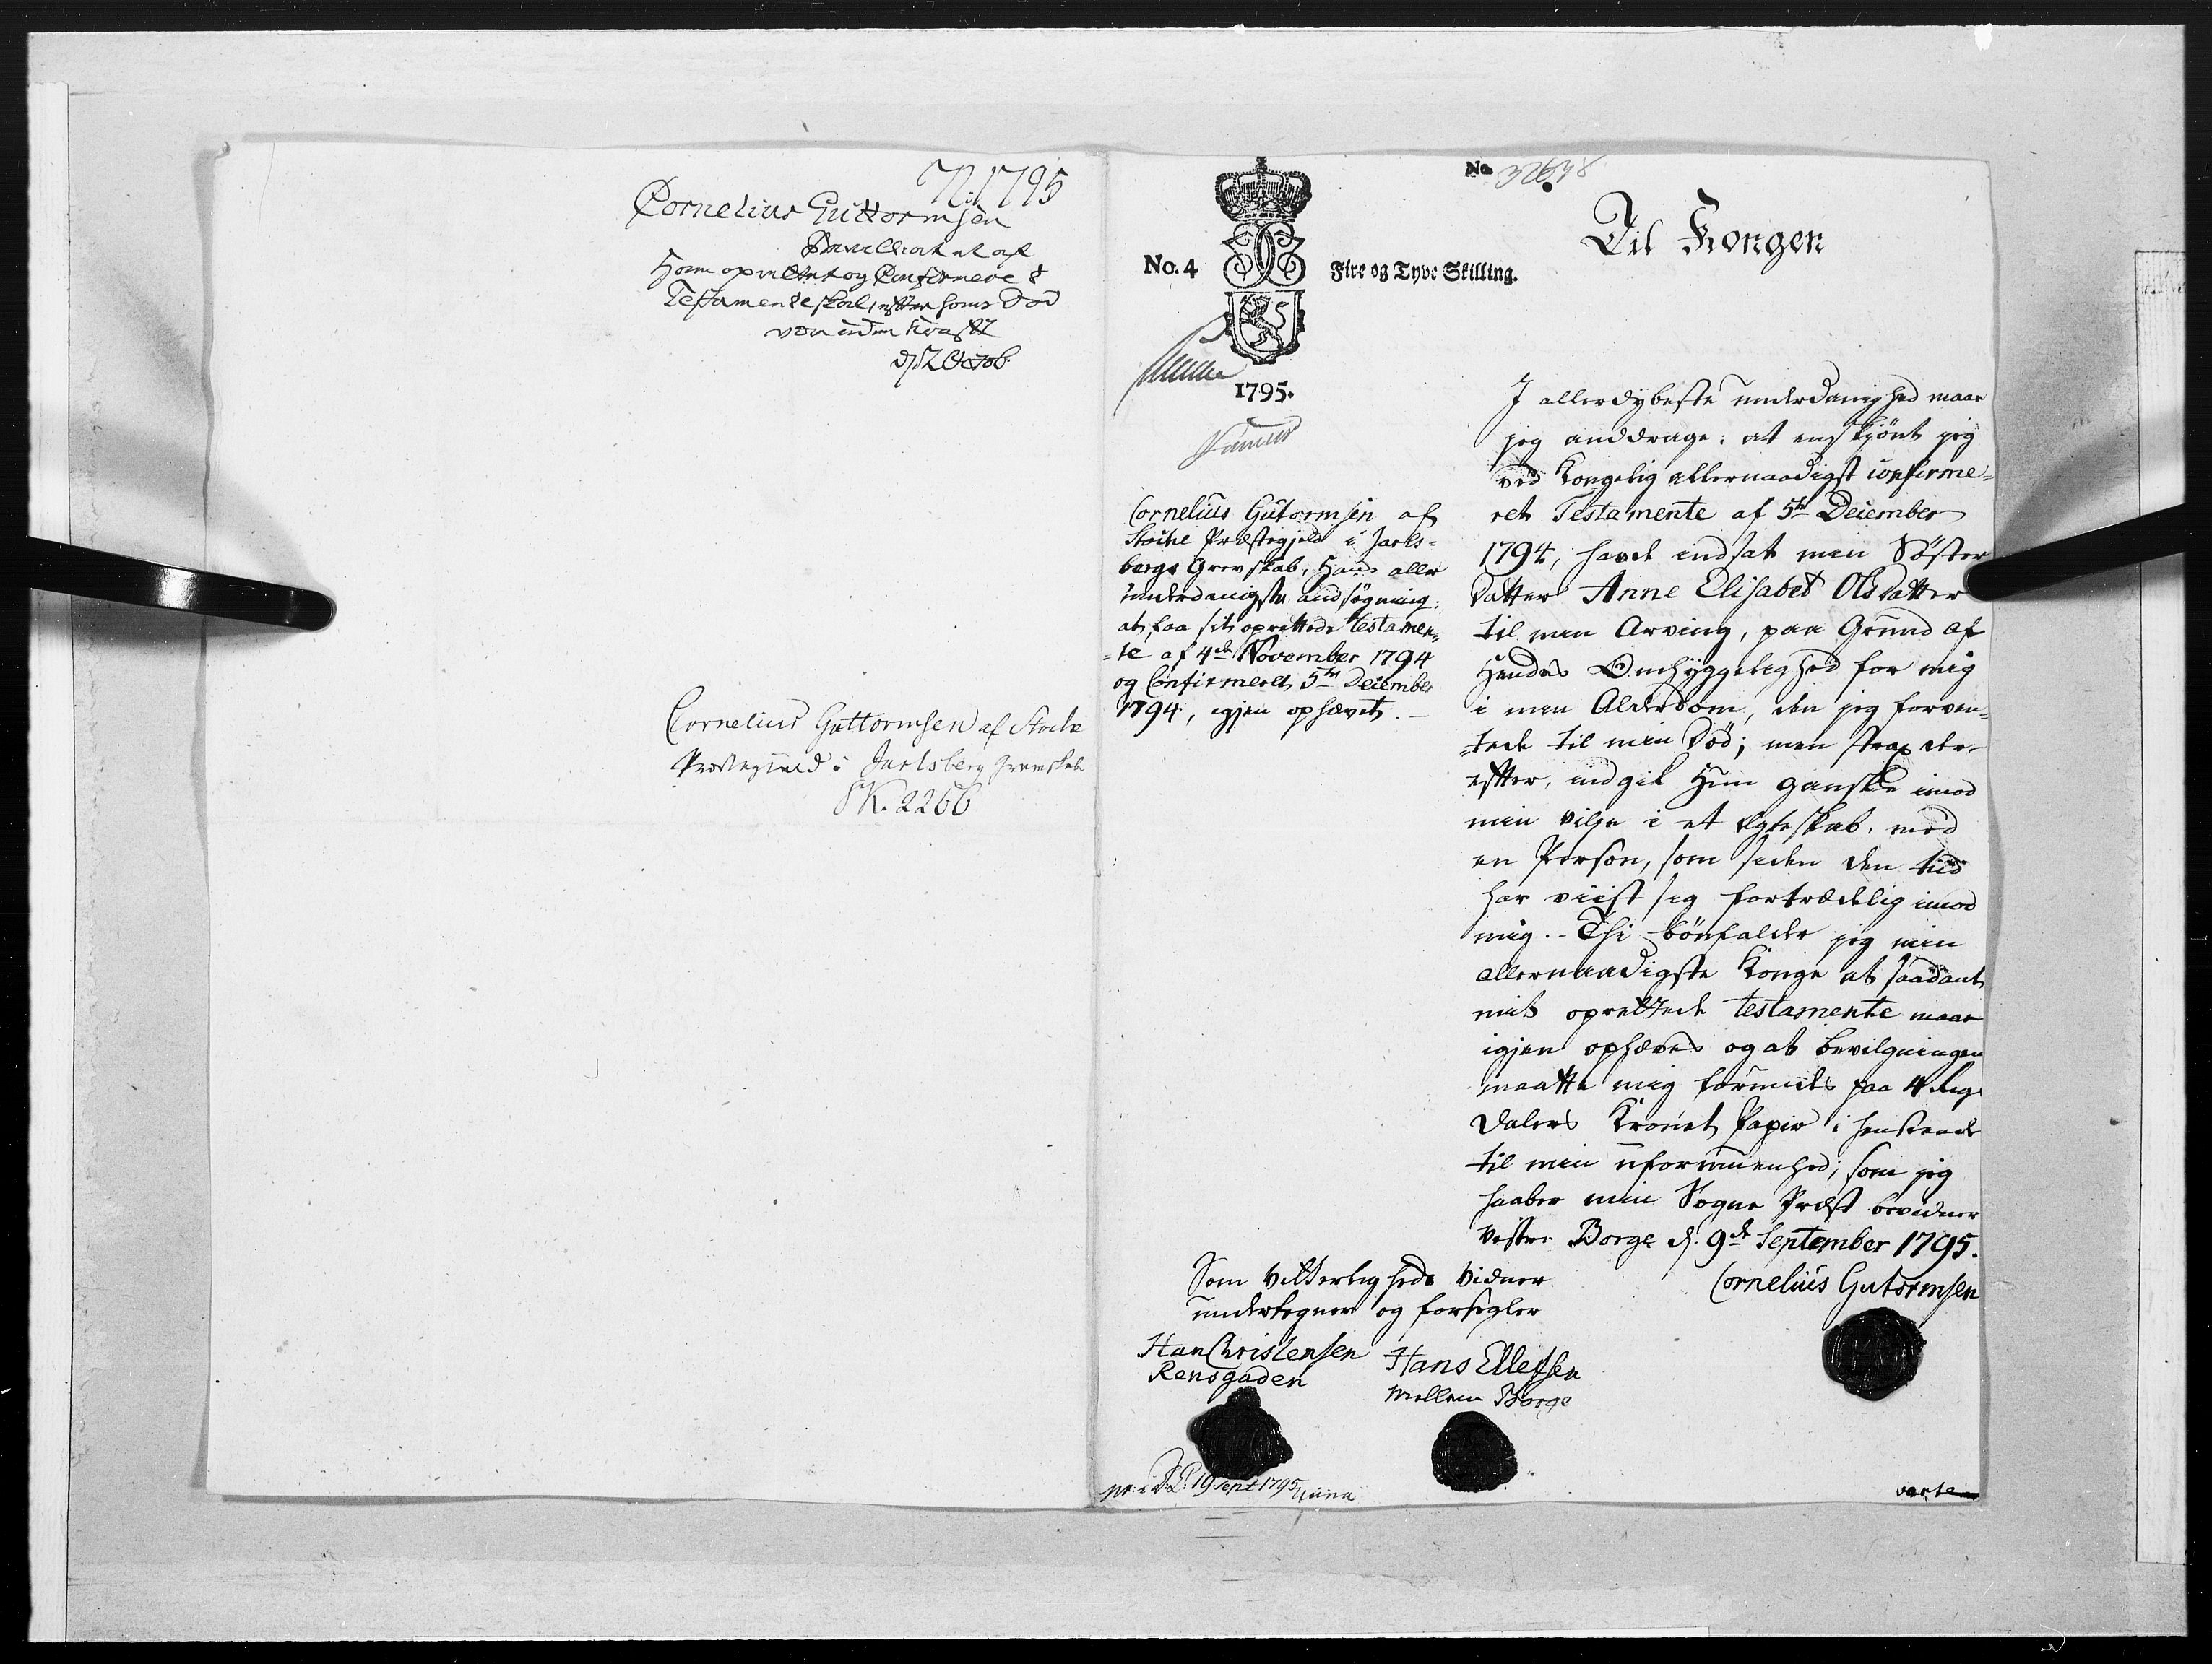 N: 1795
Cornelius Guttormsen
Bevilliat at af
Ham oprættet og Confirmeret
Testamente skal, efter hans Død
vær uden Kraft
d/ 2 Octob.
Cornelius Guttormsen af Stocke
Præstegield i Jarlsberg Grevskab
SK. 2266
No. 4
Fire og Tyve Skilling.
1795.
Cornelius Gutormsen af
Stocke Præstegjeld i Jarls-
bergs Grevskab, Hans aller
underdanigste andsøgning:
at faa sit oprettede Testamen-
-te af 4de November 1794
og Confirmeret 5te December
1794, igjen ophævet. -
No. 32618
Til Kongen
I allerdybeste underdanighed maae
jeg anddrage: at endskjönt jeg
ved Kongelig allernaadigst confirme-
ret Testamente af 5te December
1794, havde indsat min Söster
Datter Anne Elisabet Olsdatter
til min Arving, paa Grund af
Hendes Omhyggelighed for mig
i min Alderdom, den jeg forven-
-tede til min Död; men strax der-
efter, indgik Hun ganske imod
min Vilje i et Egteskab, med
en Person, som siden den tiid
har viist sig fortrædelig imod
mig. - Thi bönfalder jeg min
allernaadigste Konge at saadant
mit oprettede testamente maae
igjen ophæves og at bevilgningen
maatte mig forundes paa 4 Rigs
Dalers Kronet Papir i henseende
til min uformuenhed; som jeg
haaber min Sogne Præst bevidner
Vestre Borge d. 9de September 1795.
Cornelius Gutormsen
Som Vitterligheds Vidner
undertegner og forsegler
Han Christensen
Rensgaden
Hans Ellefsen
Mellem Borge
19 Sept 1795
verte